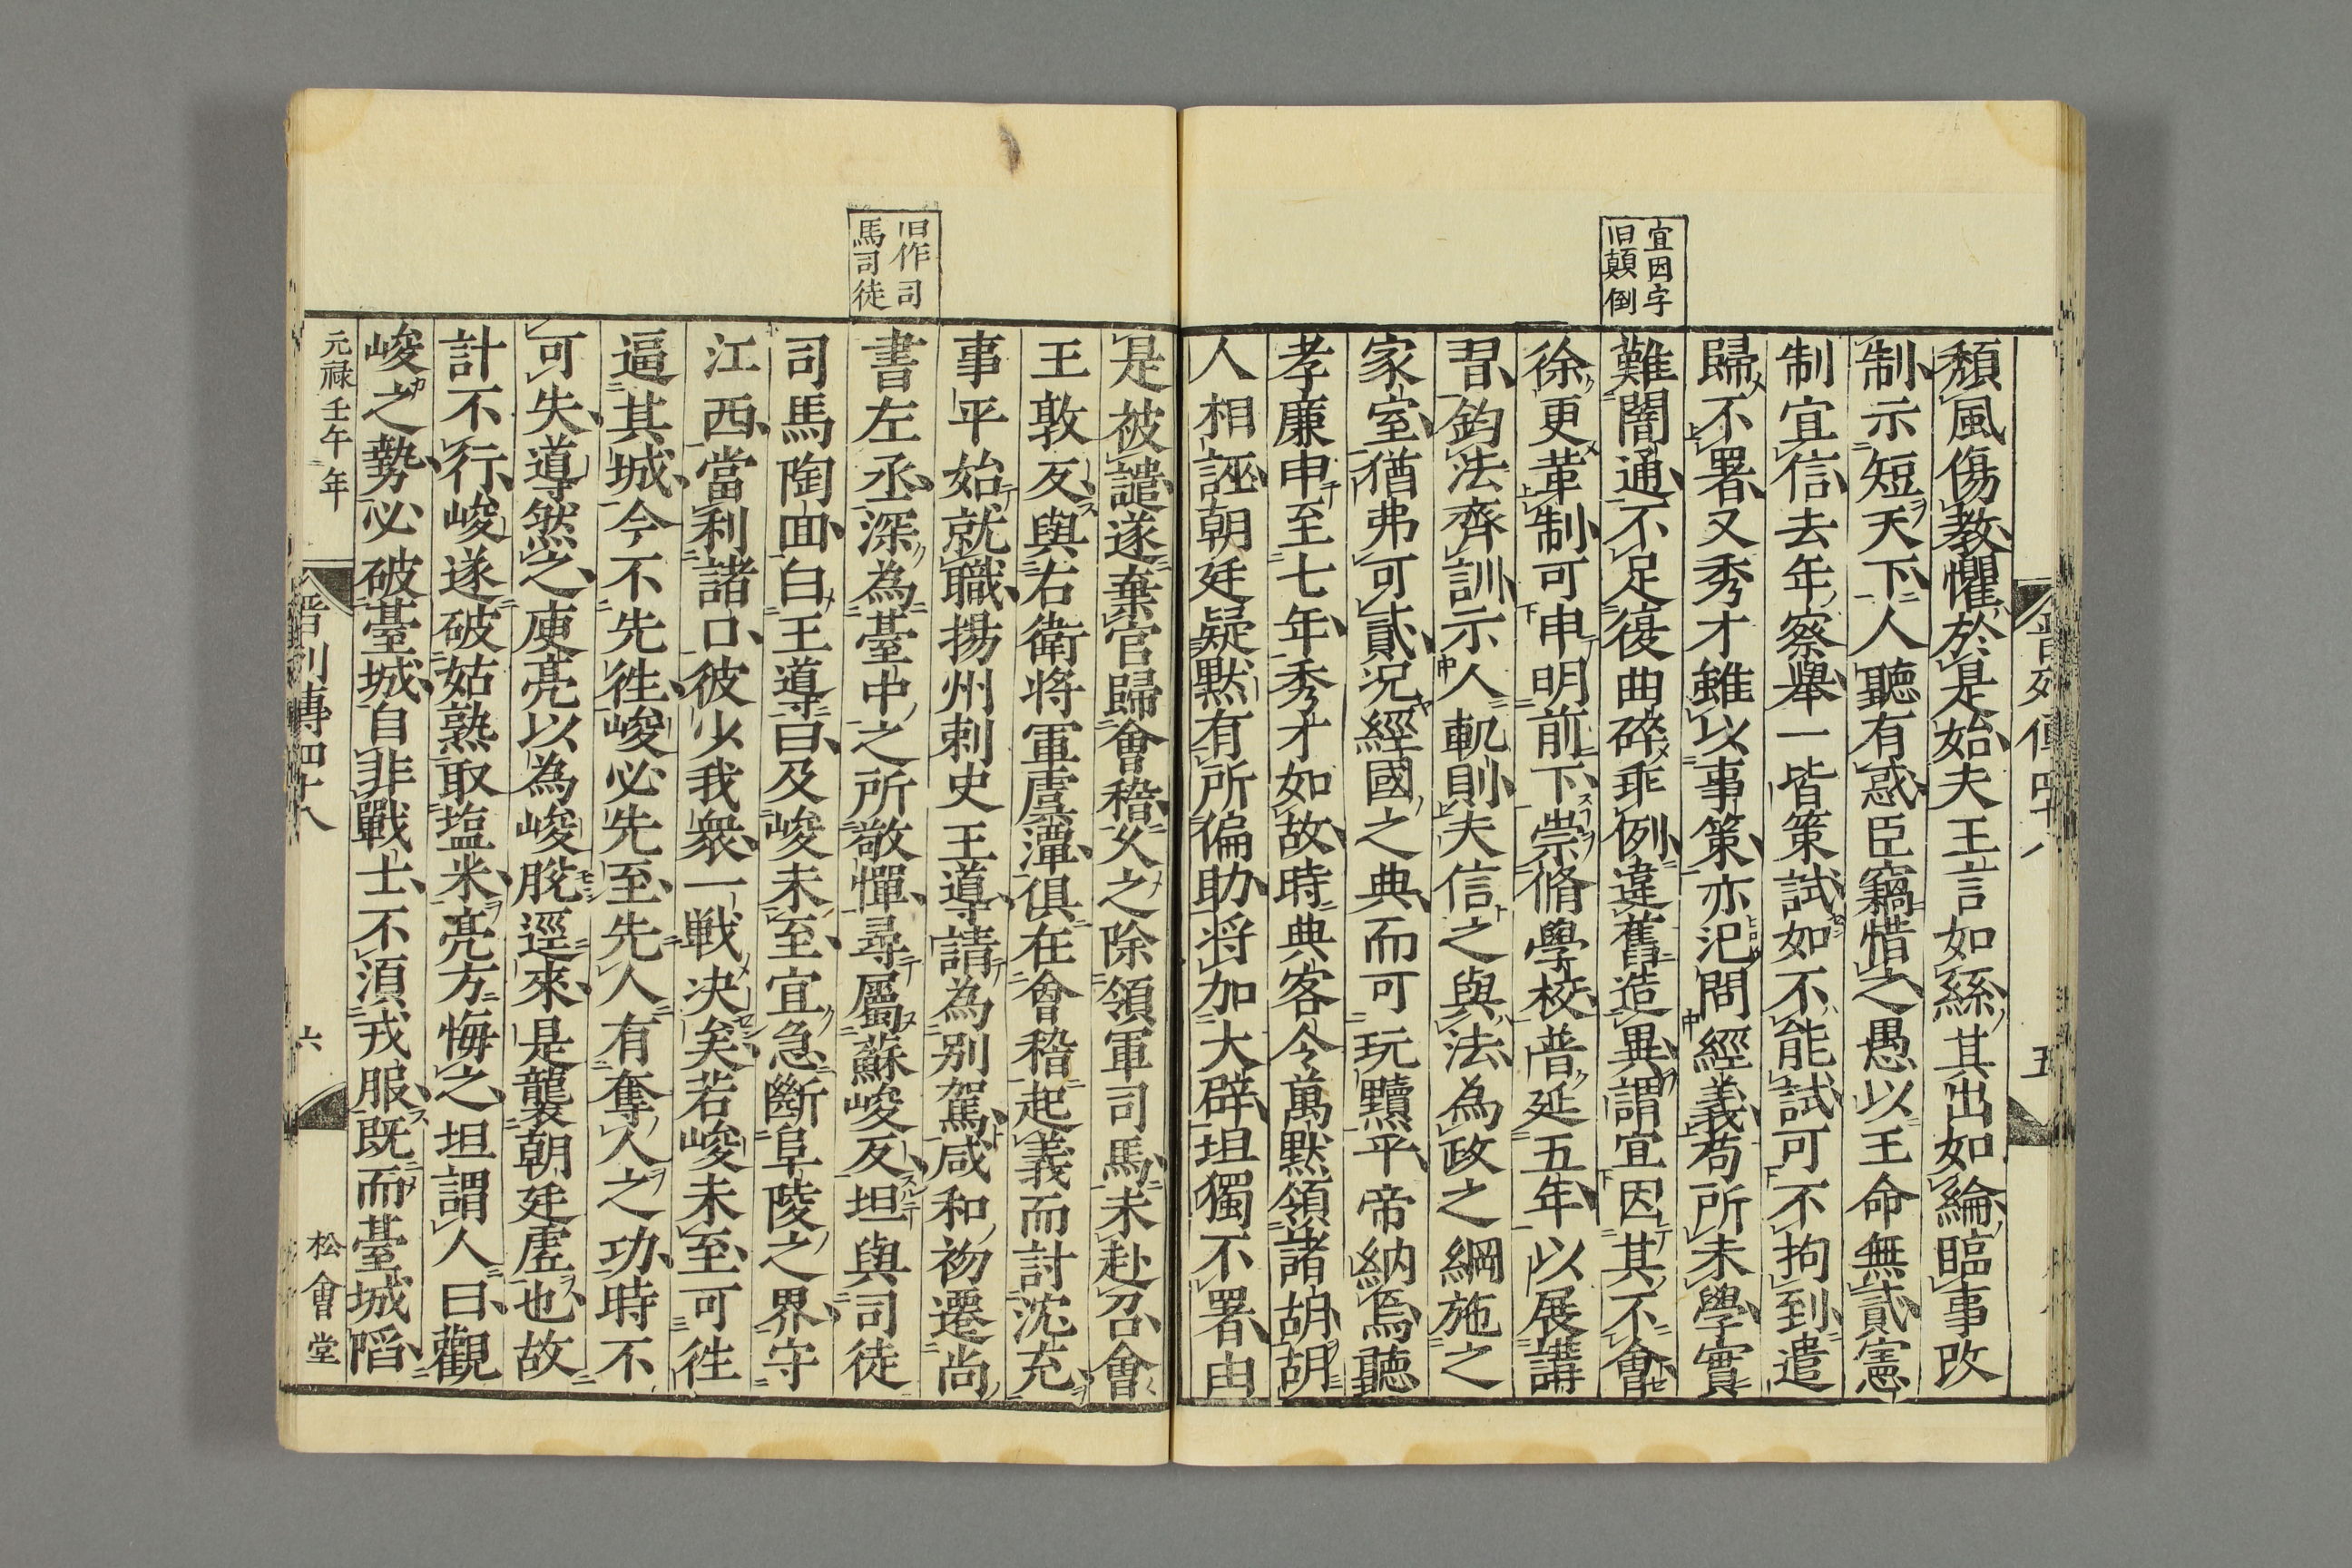 晉列傳四十八
五
宜因字
旧顛倒
頽風傷教懼於是始夫王言如絲其出如綸臨事改
制示短天下人聽有惑臣竊惜之愚以王命無貳憲
制宜信去年察舉一皆策試如不能試可不拘到遣
歸不署又秀才雖以事策亦汜問經義苟所未學實
難闇通不足復曲碎乖例違舊造異謂宜因其不會
徐更革制可申明前下崇脩學校普延五年以展講
習鈞法齊訓示人軌則夫信之與法為政之綱施之
家室猶弗可貳況經國之典而可玩黷乎帝納焉聽
孝廉申至七年秀才如故時典客令萬默領諸胡胡
人相誣朝廷疑默有所偏助将加大辟坦獨不署由
旧作司
馬司徒
是被譴遂棄官歸會稽久之除領軍司馬未赴召會
王敦反與右衛将軍虞潭俱在會稽起義而討沈充
事平始就職揚州刺史王導請為別駕咸和初遷尚
書左丞深為臺中之所敬憚尋屬蘇峻反坦與司徒
司馬陶回白王導曰及峻未至宜急斷阜陵之界守
江西當利諸口彼少我衆一戦决矣若峻未至可徃
逼其城今不先徃峻必先至先人有奪人之功時不
可失導然之庾亮以為峻脫逕來是襲朝廷虛也故
計不行峻遂破姑熟取塩米亮方悔之坦謂人曰觀
峻之勢必破臺城自非戰士不須戎服既而臺城陷
元禄壬午年
晉列傳四十八
六
松會堂